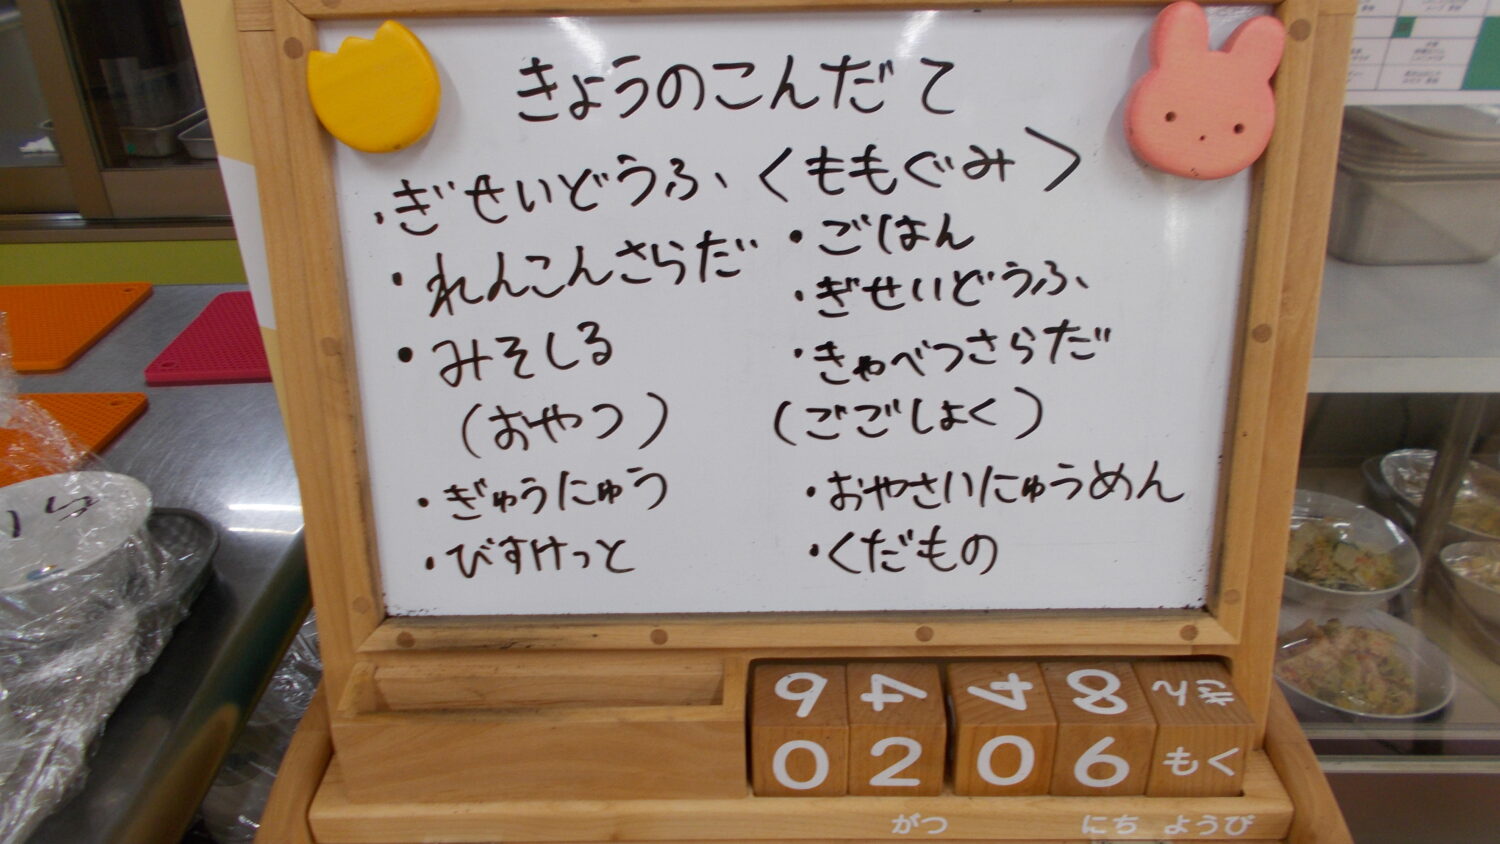 きょうのこんだて
・ぎせいどうふ
・れんこんさらだ
・みそしる
(おやつ)
・ぎゅうにゅう
・びすけっと
<ももぐみ>
・ごはん
・ぎせいどうふ
・きゃべつさらだ
(ごごしょく)
・おやさいにゅうめん
・くだもの
9 4 4 8
0 2 0 6 もく
がつ にち ようび